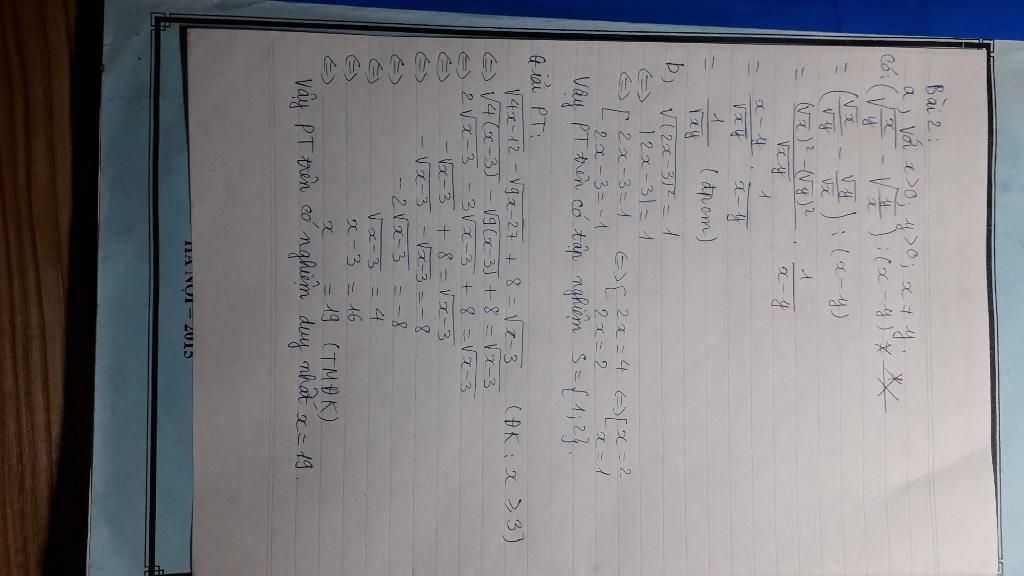 Bài 2:
a, Với x>0, y>0; x ≠ y.
Có: (√(x/y) - √(y/x)) : (x-y)
= (√x/√y - √y/√x) : (x-y)
= ((√x)² - (√y)²)/√xy . 1/(x-y)
= (x-y)/√xy . 1/(x-y)
= 1/√xy (đpcm)
b, √(2x-3)² = 1
⇔ |2x-3| = 1
⇔ [ 2x-3=1 ⇔ [ 2x=4 ⇔ [ x=2
2x-3=-1 2x=2 x=1
Vậy PT trên có tập nghiệm S={1;2}.
Giải PT:
√4x-12 - √9x-27 + 8 = √x-3 (ĐK: x ≥ 3)
⇔ √4(x-3) - √9(x-3) + 8 = √x-3
⇔ 2√x-3 - 3√x-3 + 8 = √x-3
⇔ -√x-3 + 8 = √x-3
⇔ -√x-3 - √x-3 = -8
⇔ -2√x-3 = -8
⇔ √x-3 = 4
⇔ x-3 = 16
⇔ x = 19 (TMĐK)
Vậy PT trên có nghiệm duy nhất x=19.
HÀ NỘI - 2015